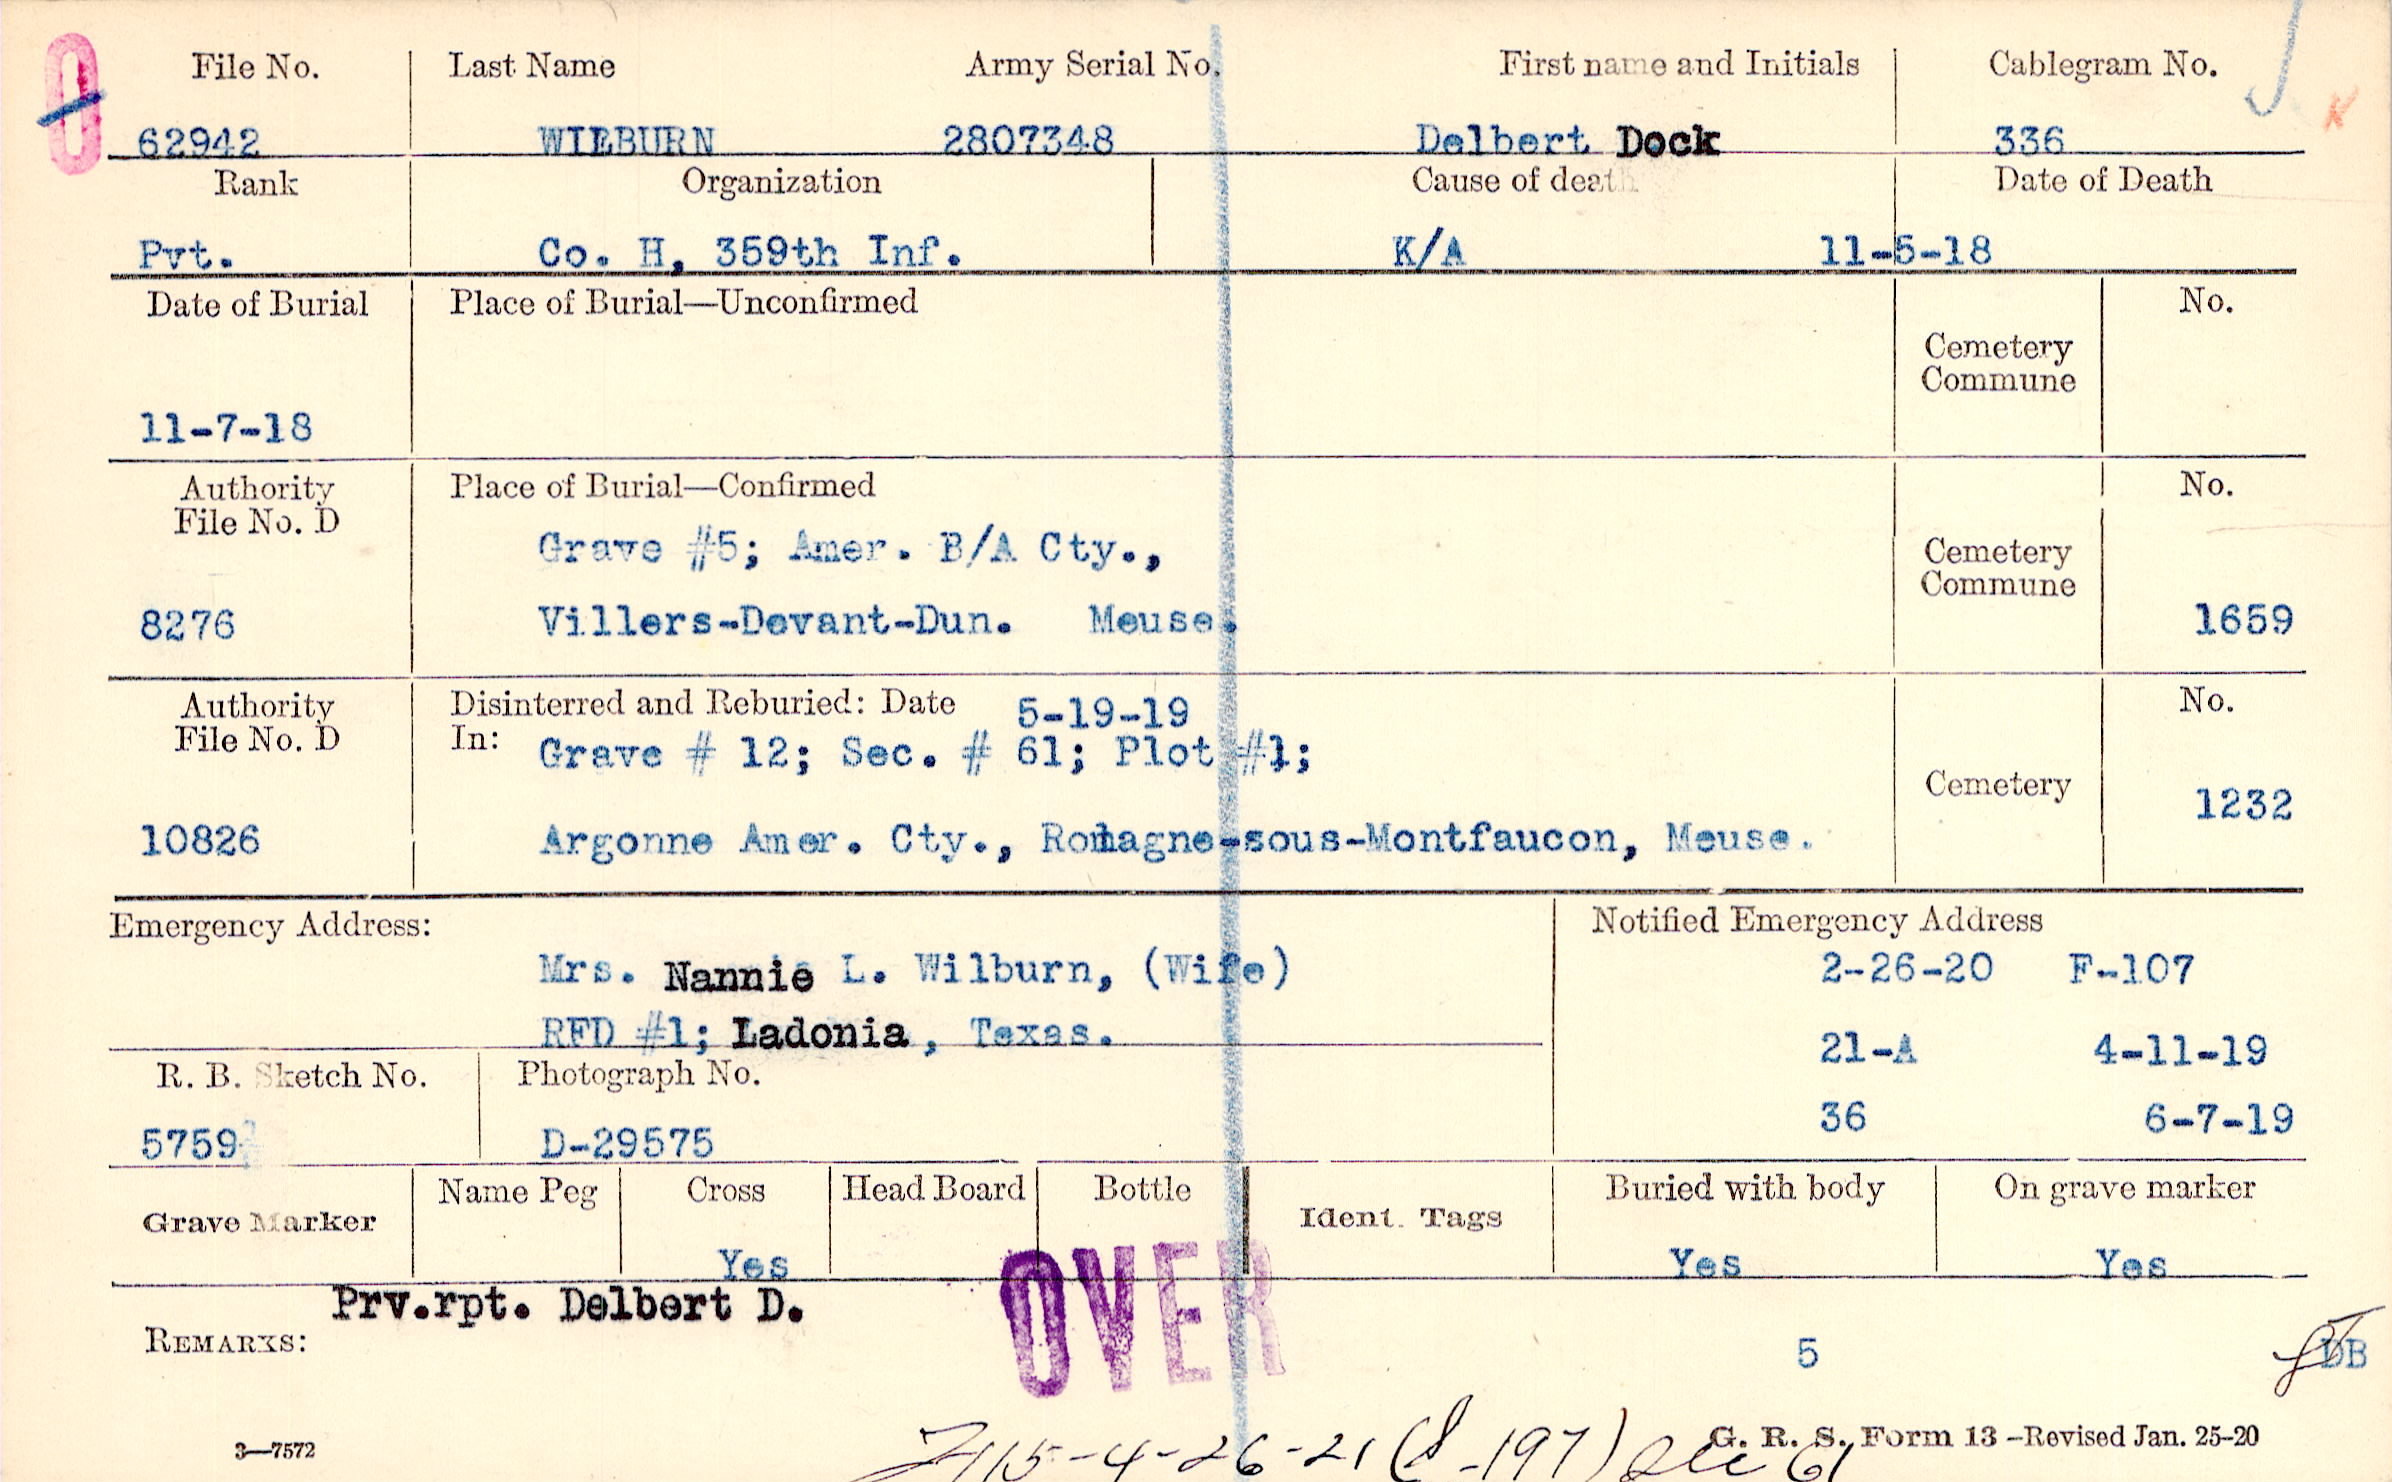 File No. Last Name Army Serial No. First name and Initials Cablegram No.
62942 WILBURN 2807348 Delbert Dock 336
Rank Organization Cause of death Date of Death
Pvt. Co. H, 359th Inf. K/A 11-5-18
Date of Burial Place of Burial—Unconfirmed No.
Cemetery
Commune
11-7-18
Authority Place of Burial—Confirmed No.
File No. D
Grave #5; Amer. B/A Cty., Cemetery
Commune
8276 Villers-Devant-Dun. Meuse. 1659
Authority Disinterred and Reburied: Date 5-19-19 No.
File No. D In: Grave # 12; Sec. # 61; Plot #1;
Cemetery 1232
10826 Argonne Amer. Cty., Romagne-sous-Montfaucon, Meuse.
Emergency Address: Notified Emergency Address
Mrs. Nannie L. Wilburn, (Wife) 2-26-20 F-107
RFD #1; Ladonia, Texas. 21-A 4-11-19
R. B. Sketch No. Photograph No.
5759 D-29575 36 6-7-19
Grave Marker Name Peg Cross Head Board Bottle Ident. Tags Buried with body On grave marker
Yes Yes Yes
Prv.rpt. Delbert D. OVER
REMARKS: 5 DB
3—7572 G. R. S. Form 13—Revised Jan. 25-20
115-4-26-21 -197) 61